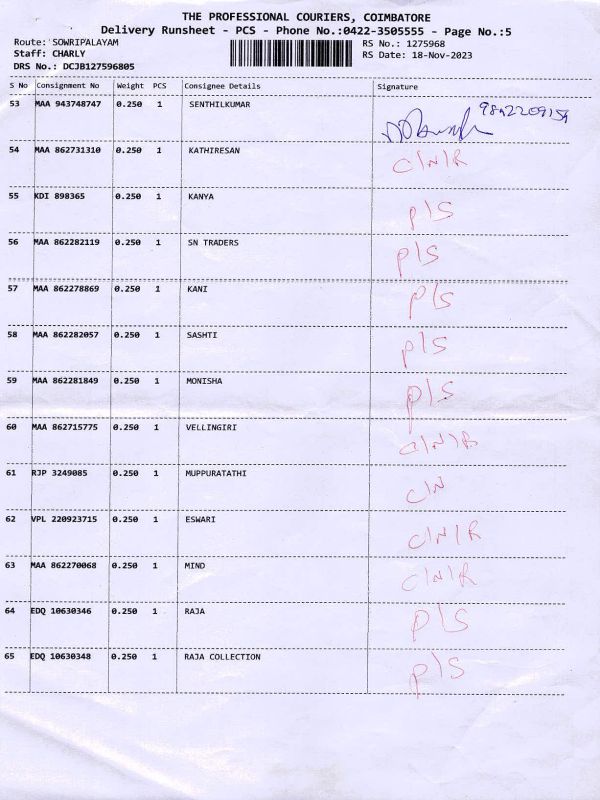 THE PROFESSIONAL COURIERS, COIMBATORE
Delivery Runsheet - PCS - Phone No.:0422-3505555 - Page No.:5
Route: SOWRIPALAYAM RS No.: 1275968
Staff: CHARLY RS Date: 18-Nov-2023
DRS No.: DCJB127596805
S No Consignment No Weight PCS Consignee Details Signature
53 MAA 943748747 0.250 1 SENTHILKUMAR
54 MAA 862731310 0.250 1 KATHIRESAN C/N/R
55 KDI 898365 0.250 1 KANYA P/S
56 MAA 862282119 0.250 1 SN TRADERS P/S
57 MAA 862278869 0.250 1 KANI P/S
58 MAA 862282057 0.250 1 SASHTI P/S
59 MAA 862281849 0.250 1 MONISHA P/S
60 MAA 862715775 0.250 1 VELLINGIRI C/N/R
61 RJP 3249085 0.250 1 MUPPURATATHI C/N
62 VPL 220923715 0.250 1 ESWARI C/N/R
63 MAA 862270068 0.250 1 MIND C/N/R
64 EDQ 10630346 0.250 1 RAJA P/S
65 EDQ 10630348 0.250 1 RAJA COLLECTION P/S